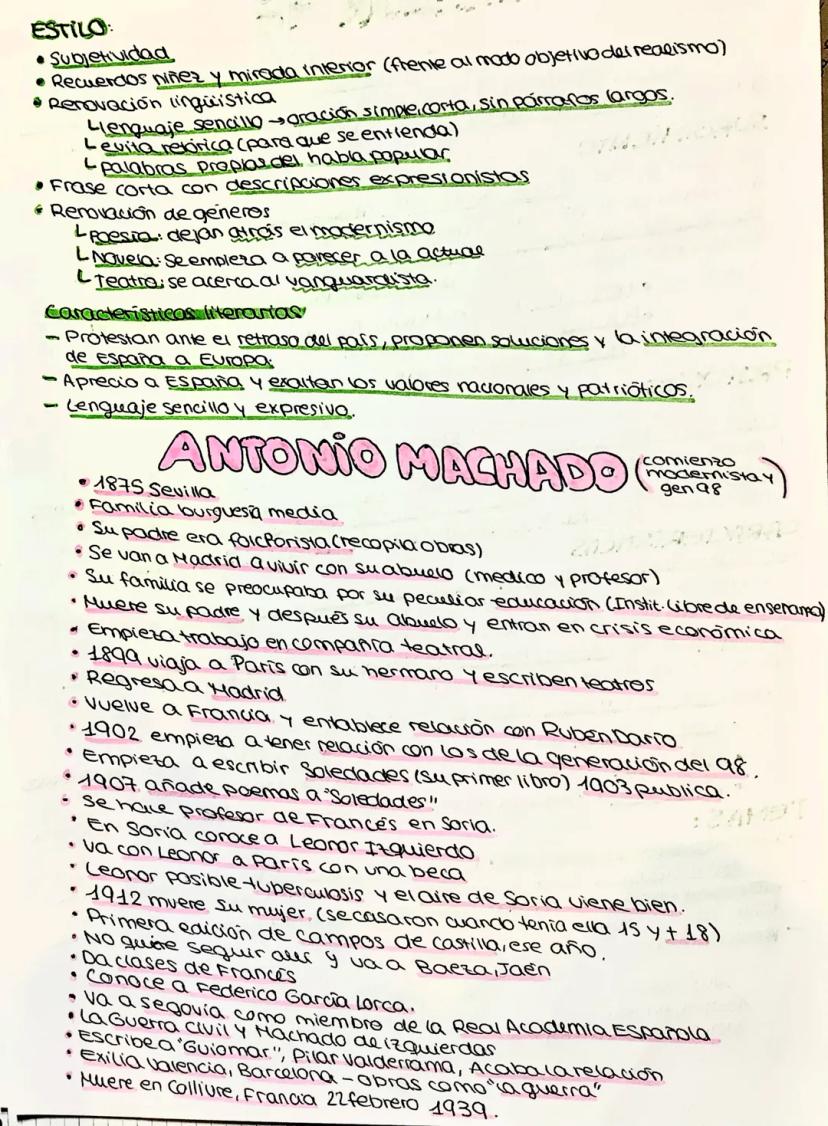 ESTILO:
• Subjetividad
• Recuerdos niñez y mirada interior (frente al modo objetivo del realismo)
• Renovación lingüística
↳lenguaje sencillo → oración simple, corta, sin párrafos largos.
↳evita retórica (para que se entienda)
↳palabras propias del habla popular
• Frase corta con descripciones expresionistas
• Renovación de géneros
↳Poesía: dejan atrás el modernismo
↳Novela: se empieza a parecer a la actual
↳Teatro: se acerca al vanguardista.
Características literarias
- Protestan ante el retraso del país, proponen soluciones y la integración
de España a Europa.
- Aprecio a España y exaltan los valores nacionales y patrióticos.
- Lenguaje sencillo y expresivo.
ANTONIO MACHADO (comienzo
modernista y
gen 98)
• 1875 Sevilla
• Familia burguesía media
• Su padre era folclorista (recopila obras)
• Se van a Madrid a vivir con su abuelo (medico y profesor)
• Su familia se preocupaba por su peculiar educación (Instit. Libre de enseñanza)
• Muere su padre y después su abuelo y entran en crisis económica
• Empieza trabajo en compañía teatral.
• 1899 viaja a París con su hermano y escriben teatros
• Regresa a Madrid
• Vuelve a Francia y entablece relación con Rubén Darío
• 1902 empieza a tener relación con los de la generación del 98.
• Empieza a escribir Soledades (su primer libro) 1903 publica.
• 1907 añade poemas a "Soledades"
• Se hace profesor de Francés en Soria.
• En Soria conoce a Leonor Izquierdo
• Va con Leonor a París con una beca
• Leonor posible tuberculosis y el aire de Soria viene bien.
• 1912 muere su mujer, (se casaron cuando tenía ella 15 y + 18)
• Primera edición de campos de castilla, ese año.
• No quiere seguir allí y va a Baeza, Jaén
• Da clases de Francés
• Conoce a Federico García Lorca.
• Va a segovia como miembro de la Real Academia Española
• La Guerra Civil y Machado de izquierdas
• Escribe a "Guiomar", Pilar Valderrama, Acaba la relación
• Exilia Valencia, Barcelona - obras como "la guerra"
• Muere en Collivre, Francia 22 febrero 1939.